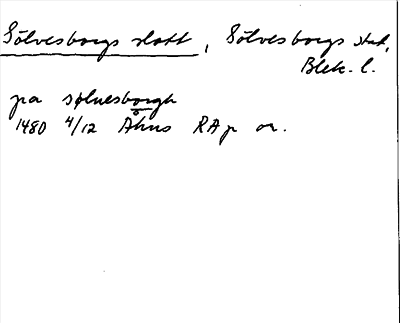 Sölvesborgs slott, Sölvesborgs stad,
Blek. l.
pa sølnesborgh
1480 4/12 Åhus RAp or.